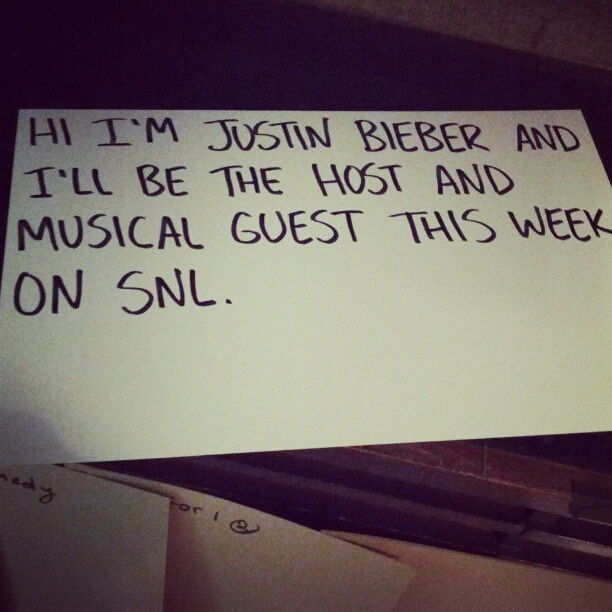 HI I'M JUSTIN BIEBER AND
I'LL BE THE HOST AND
MUSICAL GUEST THIS WEEK
ON SNL.